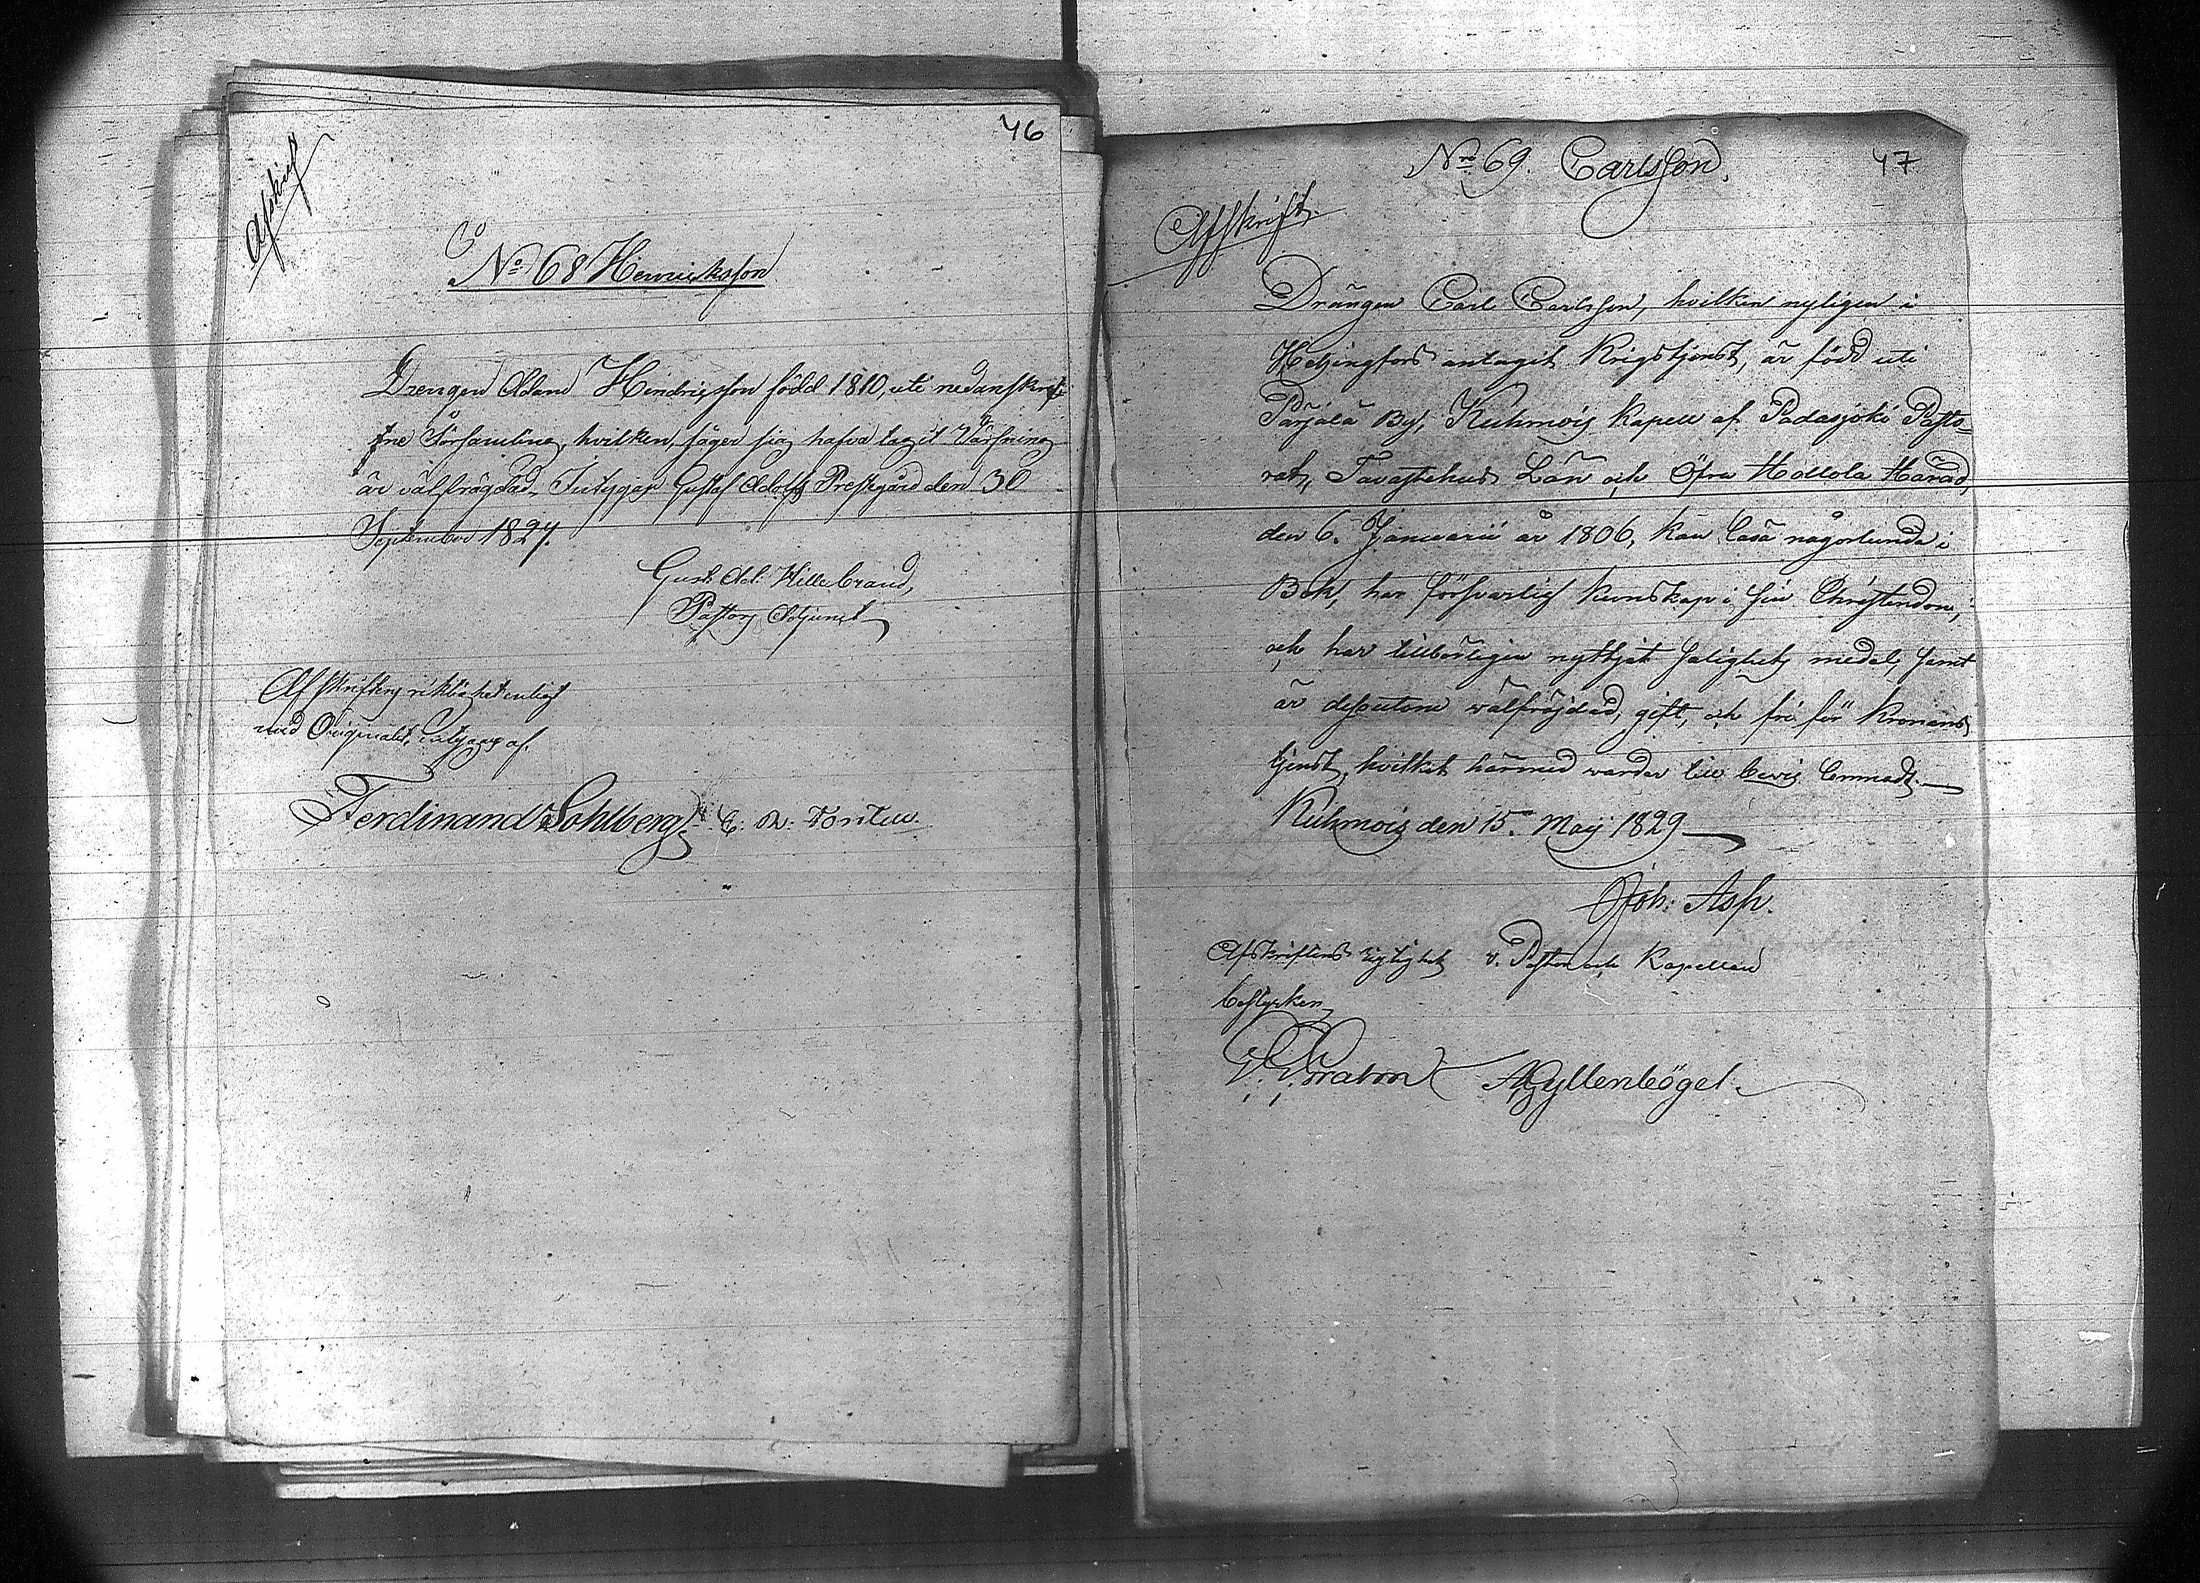 46
Afskrift
No 68 Henricksson
Drengen Adam Hindrigsson född 1810, uti nedanskref-
fne Församling, hvilken säger sig hafva tagit Värfning
är välfrägdad, Intygger Gustaf Adolfs Prestgård den 30
September 1827.
Gust. Ad. Willebrand,
Pastors Adjunct
Afskriftens riktighet enligt
med Originalet, intygas af.
Ferdinand Sohlberg
47
Nro 69. Carlsson.
Afskrift.
Drängen Carl Carlsson, hvilken nyligen i
Helsingfors antagit Krigstjenst, är född uti
Pärjälä By, Kuhmois Kapell af Padasjoki Pasto=
rat, Tavastehus Län och Öfra Hollola Härad,
den 6. Januarii år 1806, kan läsa någorlunda i
Bok, har försvarlig kunskap i sin Christendom,
och har tillbörligen nyttjat salighets medel, samt
är dessutom wälfräjdad, gift, och fri för Kronans
tjenst, hvilket härmed warder till bevis lemnadt.
Kuhmois den 15. Maij 1829
Joh: Asp.
Afskriftens rigtighet v. Pastor och Kapellan
bestyrken
A Gyllenbögel.